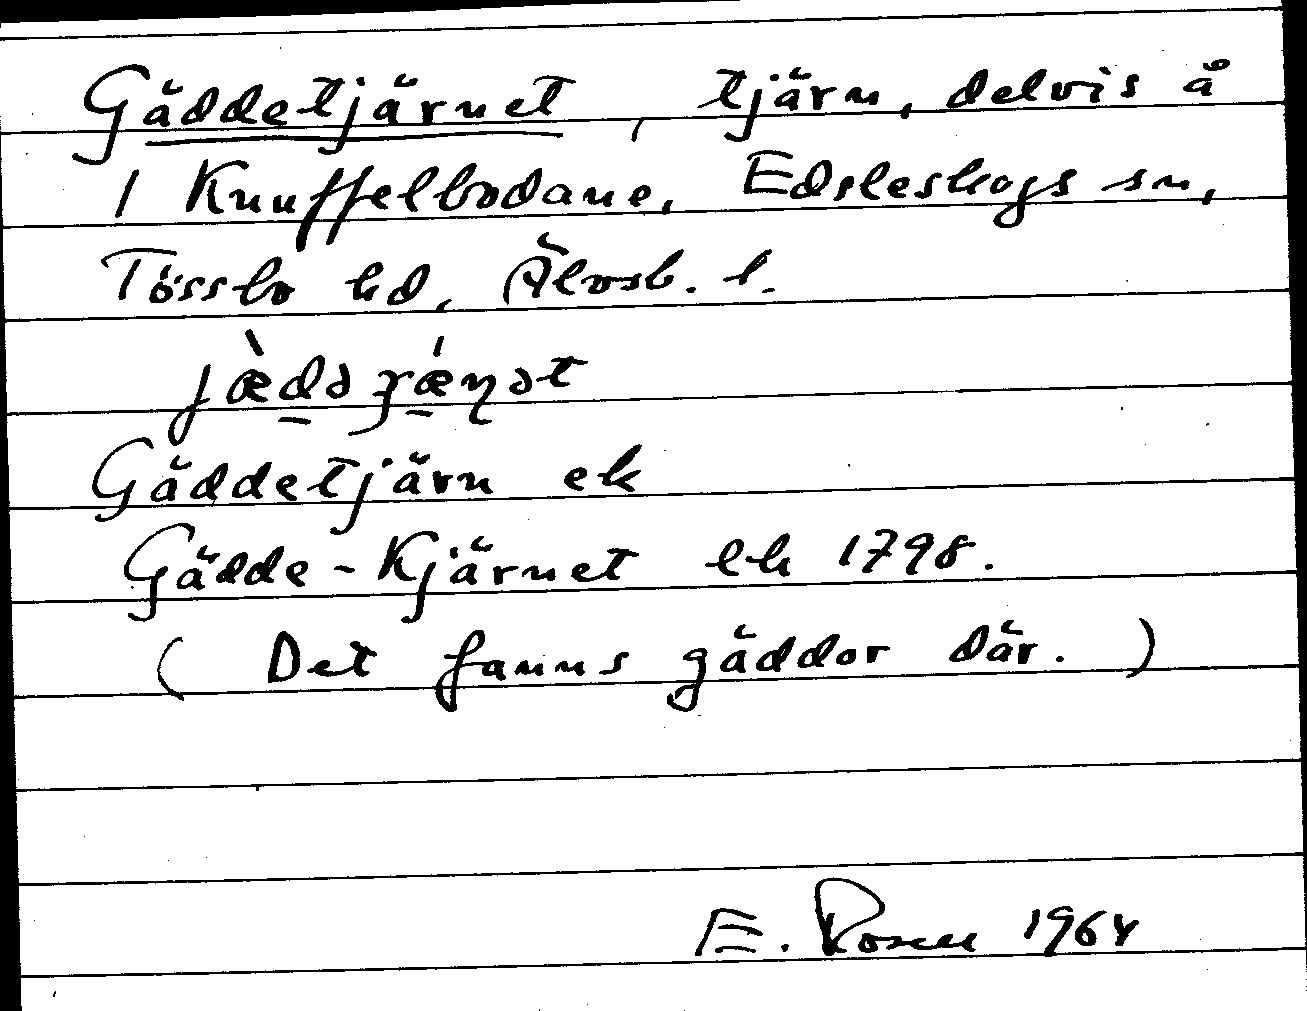 Gäddetjärnet, tjärn, delvis å
1 Knuffelbodane, Edsleskogs sn,
Tössbo hd, Älvsb. l.
Gäddetjärn ek
Gädde-Kjärnet lh 1798.
( Det fanns gäddor där. )
E. Rosen 1964